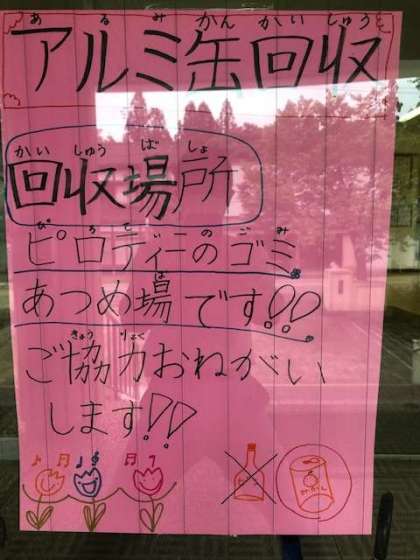 あるみかんかいしゅう
アルミ缶回収
かいしゅうばしょ
回収場所
ぴろてぃ ごみ
ピロティーのゴミ
ば
あつめ場です!!
きょうりょく
ご協力おねがい
します!!